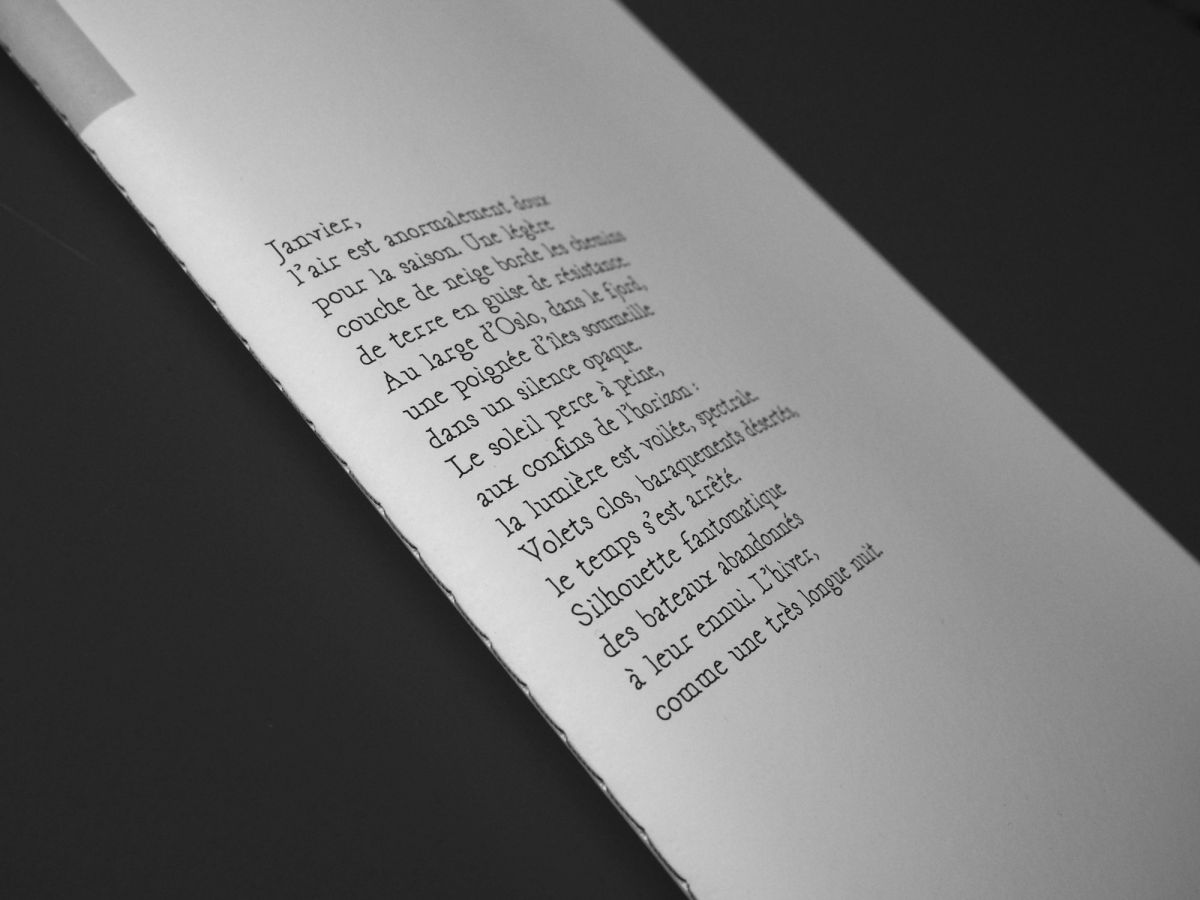 Janvier,
l'air est anormalement doux
pour la saison. Une légère
couche de neige borde les chemins
de terre en guise de résistance.
Au large d'Oslo, dans le fjord,
une poignée d'îles sommeille
dans un silence opaque.
Le soleil perce à peine,
aux confins de l'horizon :
la lumière est voilée, spectrale.
Volets clos, baraquements désertés,
le temps s'est arrêté.
Silhouette fantomatique
des bateaux abandonnés
à leur ennui. L'hiver,
comme une très longue nuit.